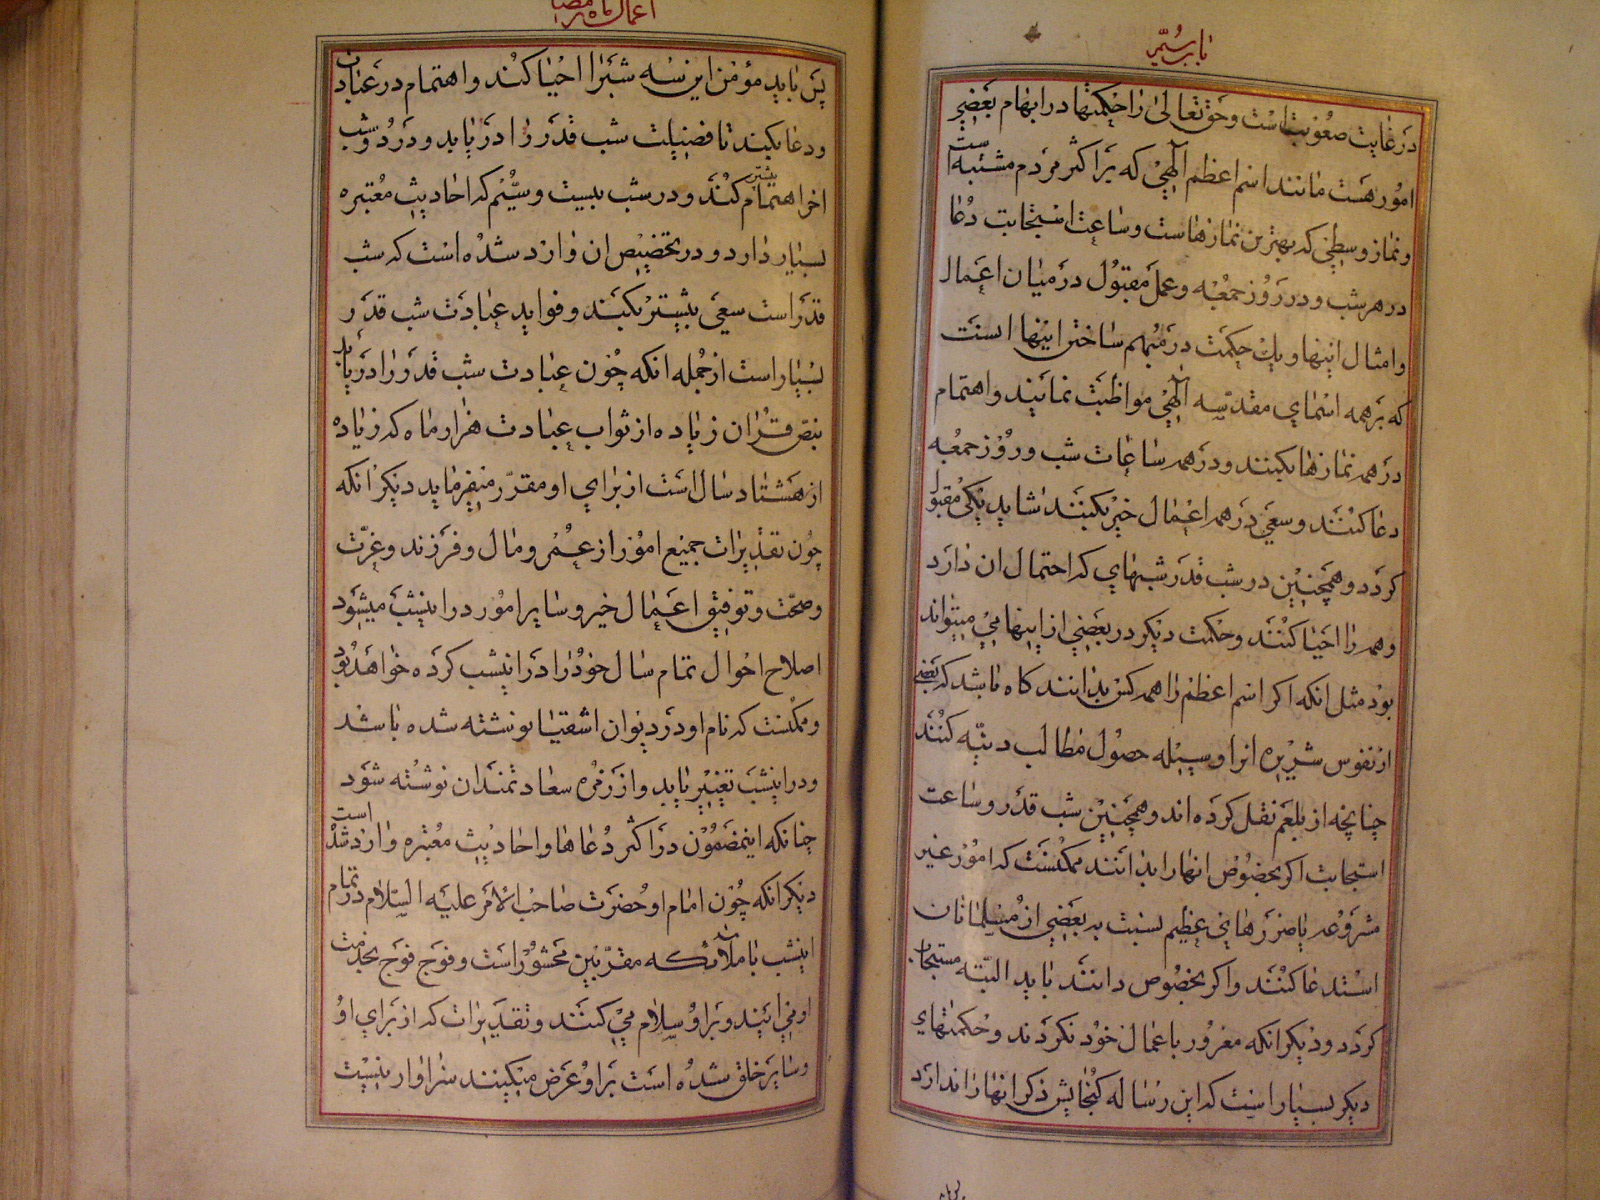 باب سیّم
در غایت صعوبت است و حق تعالی را حکمتها در ابهام بعضی
امور هست مانند اسم اعظم الهی که بر اکثر مردم مشتبه است
و نماز وسطی که بهترین نمازهاست و ساعت استجابت دعا
در هر شب و در روز جمعه و عمل مقبول در میان اعمال
و امثال اینها و یك حکمت در مبهم ساختن اینها اینست
که بر همه اسمای مقدّسه الهی مواظبت نمایند و اهتمام
در همه نمازها بکنند و در همه ساعات شب و روز جمعه
دعا کنند و سعی در همه اعمال خیر بکنند شاید یکی مقبول
کردد و همچنین در شب قدر شبهای که احتمال ان دارد
و همه را احیا کنند و حکمت دیکر در بعضی از اینها می میتواند
بود مثل انکه اکر اسم اعظم را همه کس بدانند کاه باشد که بعضی
از نفوس شریره انرا وسیله حصول مطالب دنیّه کنند
چنانچه از بلعم نقل کرده‌اند و همچنین شب قدر و ساعت
استجابت اکر بخصوص انها را بدانند ممکنست که امور غیر
مشروعه یا ضررهای عظیم نسبت به بعضی از مسلمانان
استدعا کنند و اکر بخصوص دانند باید البتّه مستجاب
کردد و دیکر انکه مغرور باعمال خود نکردند و حکمتهای
دیکر بسیار است که این رساله کنجایش ذکر انها را ندارد
اعمال ماه رمضان
پس باید مؤمن این سه شب را احیا کند و اهتمام در عبادت
و دعا بکند تا فضیلت شب قدر را دریابد و در دو شب
اخر اهتمام بیشتر کند و در شب بیست و سیُّم که احادیث معتبره
بسیار دارد و در تخصیص ان وارد شده است که شب
قدر است سعی بیشتر بکند و فواید عبادت شب قدر
بسیار است از جمله انکه چون عبادت شب قدر را دریابد
بنص قران زیاده از ثواب عبادت هزار ماه که زیاده
از هشتاد سال است از برای او مقرّر میفرماید دیکر انکه
چون تقدیرات جمیع امور از عمر و مال و فرزند و عزّت
و صحّت و توفیق اعمال خیر و سایر امور در اینشب میشود
اصلاح احوال تمام سال خود را در اینشب کرده خواهد بود
و ممکنست که نام او در دیوان اشقیا نوشته شده باشد
و در اینشب تغییر یابد و از زمره سعادتمندان نوشته شود
چنانکه اینمضمون در اکثر دعاها و احادیث معتبره وارد شده است
دیکر انکه چون امام او حضرت صاحب الامر علیه السلام در تمام
اینشب با ملائکه مقرّبین محشور است و فوج فوج بخدمت
او می‌ایند و بر او سلام می کنند و تقدیرات که از برای او
و سایر خلق شده است بر او عرض میکنند سزاوار نیست